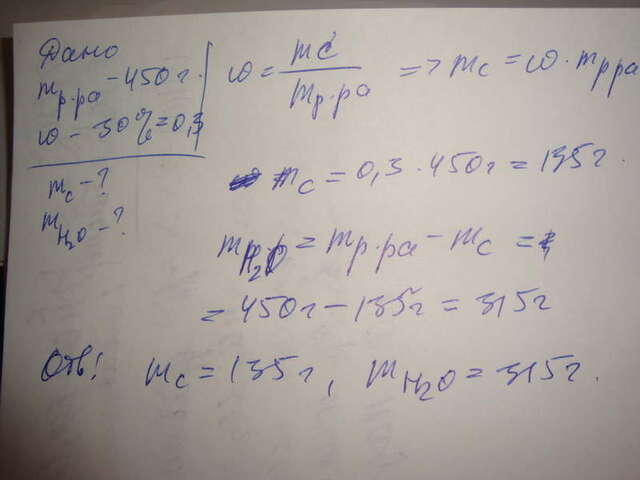 Дано
m р-ра - 450 г.
ω - 30% = 0,3
m c - ?
m H2O - ?
ω = mc / m р-ра => mc = ω · m р-ра
mc = 0,3 · 450 г = 135 г.
m H2O = m р-ра - mc =
= 450 г - 135 г = 315 г
Отв: mc = 135 г, m H2O = 315 г.